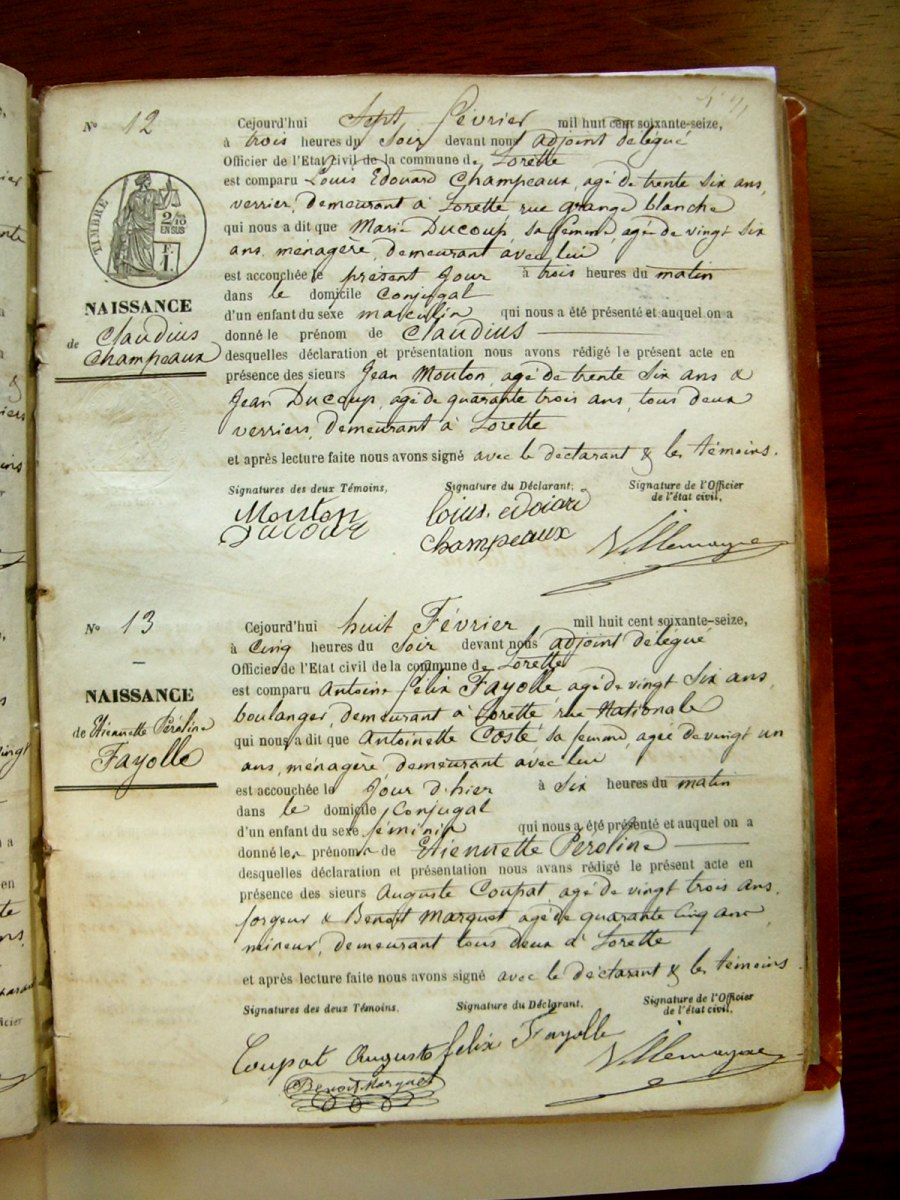 N° 12
Cejourd'hui Sept Février mil huit cent soixante-seize,
à trois heures du Soir devant nous adjoint délégué
Officier de l'Etat civil de la commune de Lorette
est comparu Louis Edouard Champeaux, agé de trente Six ans,
verrier, demeurant à Lorette rue grange blanche
qui nous a dit que Marie Ducoup, sa femme, agée de vingt six
ans, ménagère, demeurant avec lui
est accouchée le présent Jour à trois heures du matin
dans le domicile Conjugal
d'un enfant du sexe masculin qui nous a été présenté et auquel on a
donné le prénom de Claudius
desquelles déclaration et présentation nous avons rédigé le présent acte en
présence des sieurs Jean Mouton, agé de trente Six ans &
Jean Ducoup, agé de quarante trois ans, tous deux
verriers, demeurant à Lorette
et après lecture faite nous avons signé avec le déclarant & les témoins.
TIMBRE
2/10
EN SUS
F
1.
NAISSANCE
de Claudius
Champeaux
Signatures des deux Témoins,
Signature du Déclarant,
Signature de l'Officier
de l'état civil.
Mouton
louis. edoiard
champeaux
Villemagne
N° 13
Cejourd'hui huit Février mil huit cent soixante-seize,
à Cinq heures du Soir devant nous adjoint délégué
Officier de l'Etat civil de la commune de Lorette
est comparu Antoine félix Fayolle agé de vingt Six ans,
boulanger, demeurant à Lorette rue Nationale
qui nous a dit que Antoinette Coste sa femme, agée de vingt un
ans, ménagère, demeurant avec lui
est accouchée le Jour d'hier à Six heures du matin
dans le domicile Conjugal
d'un enfant du sexe féminin qui nous a été présenté et auquel on a
donné les prénoms de Etiennette Péroline
desquelles déclaration et présentation nous avans rédigé le présent acte en
présence des sieurs Auguste Coupat agé de vingt trois ans,
forgeur & Benoît Marquet agé de quarante Cinq ans
mineur, demeurant tous deux à Lorette
et après lecture faite nous avons signé avec le déclarant & les témoins.
NAISSANCE
de Etiennette Péroline
Fayolle
Signatures des deux Témoins.
Signature du Déclarant.
Signature de l'Officier
de l'état civil.
Coupat Auguste
felix Fayolle
Villemagne
Benoit Marquet